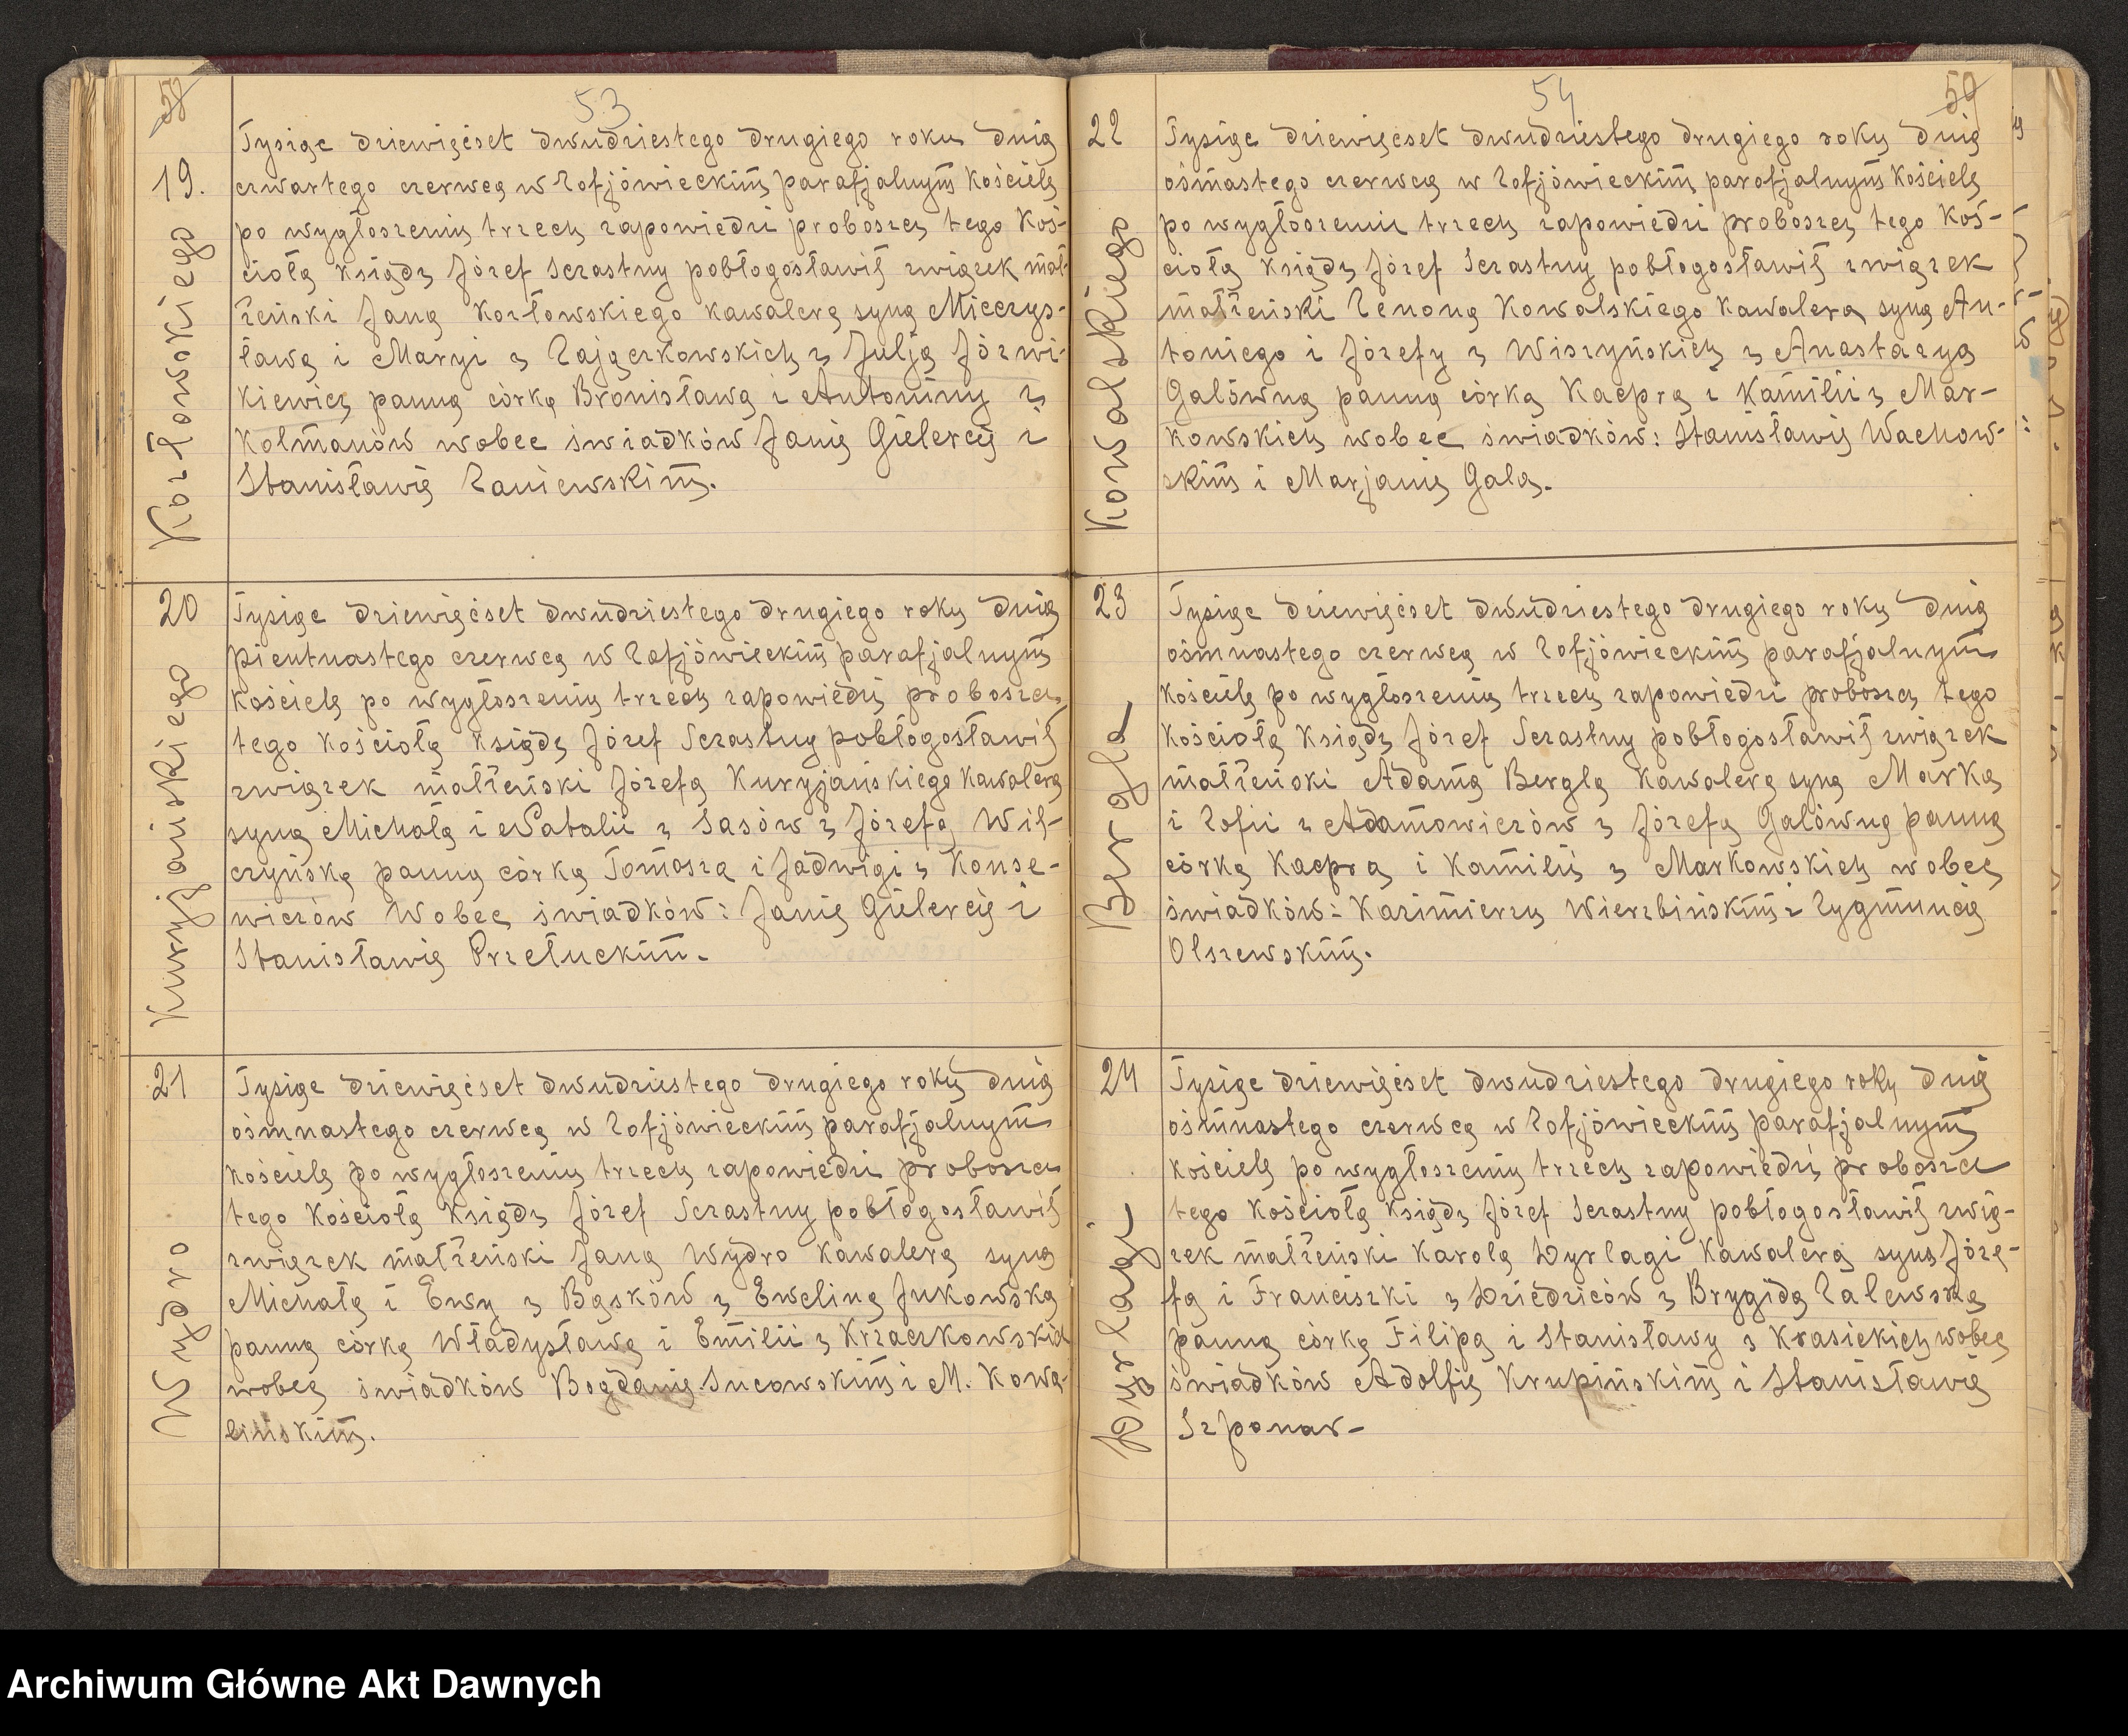 58
53
19.
Kozłowskiego
Tysiąc dziewięćset dwudziestego drugiego roku dnia
czwartego czerwca w Zofjówieckim parafjalnym Kościele
po wygłoszeniu trzech zapowiedzi proboszcz tego Koś-
cioła Ksiądz Józef Szrastny pobłogosławił związek mał-
żeński Jana Kozłowskiego kawalera syna Mieczys-
ława i Maryi z Zajączkowskich z Julją Józwi-
kiewicz panną córką Bronisława i Antoniny z
Kolmanów wobec świadków Janie Gielercie i
Stanisławie Zaniewskim.
20
Kuryjańskiego
Tysiąc dziewięćset dwudziestego drugiego roku dnia
pientnastego czerwca w Zofjówieckim parafjalnym
Kościele po wygłoszeniu trzech zapowiedzi proboszcz
tego Kościoła Ksiądz Józef Szrastny pobłogosławił
związek małżeński Józefa Kuryjańskiego Kawalera
syna Michała i Natalii z Sasów z Józefą Wil-
czyńską panną córką Tomasza i Jadwigi z Konse-
wiczów Wobec świadków: Janie Gielercie i
Stanisławie Przełuckim.
21
Wydro
Tysiąc dziewięćset dwudziestego drugiego roku dnia
ośmnastego czerwca w Zofjówieckim parafjalnym
Kościele po wygłoszeniu trzech zapowiedzi proboszcz
tego Kościoła Ksiądz Józef Szrastny pobłogosławił
związek małżeński Jana Wydro Kawalera syna
Michała i Ewy z Bąsków z Eweliną Jukowską
panną córką Władysława i Emilii z Krzaczkowskich
wobec świadków Bogdanie Sucowskim i M. Kowa-
lińskim.
54
59
22
Kowalskiego
Tysiąc dziewięćset dwudziestego drugiego roku dnia
ośmastego czerwca w Zofjówieckim parafjalnym Kościele
po wygłoszeniu trzech zapowiedzi proboszcz tego Koś-
cioła Ksiądz Józef Szrastny pobłogosławił związek
małżeński Zenona Kowalskiego Kawalera syna An-
toniego i Józefy z Wiszyńskich z Anastazyą
Galówną panną córką Kacpra i Kamilii z Mar-
kowskich wobec świadków: Stanisławie Wachow-
skim i Marjanie Gala.
23
Bergla
Tysiąc dziewięćset dwudziestego drugiego roku dnia
ośmnastego czerwca w Zofjówieckim parafjalnym
Kościele po wygłoszeniu trzech zapowiedzi proboszcz tego
Kościoła Ksiądz Józef Szrastny pobłogosławił związek
małżeński Adama Bergla Kawalera syna Marka
i Zofii z Adamowiczów z Józefą Galówną panną
córką Kacpra i Kamilii z Markowskich wobec
świadków: Kazimierzu Wierzbińskim i Zygmuncie
Olszewskim.
24
Dyrlagi
Tysiąc dziewięćset dwudziestego drugiego roku dnia
ośmnastego czerwca w Zofjówieckim parafjalnym
Kościele po wygłoszeniu trzech zapowiedzi proboszcz
tego Kościoła Ksiądz Józef Szrastny pobłogosławił zwią-
zek małżeński Karola Dyrlagi Kawalera syna Józe-
fa i Franciszki z Dziedziców z Brygidą Zalewską
panną córką Filipa i Stanisławy z Krasickich wobec
świadków Adolfie Krupińskim i Stanisławie
Szponar-
Archiwum Główne Akt Dawnych